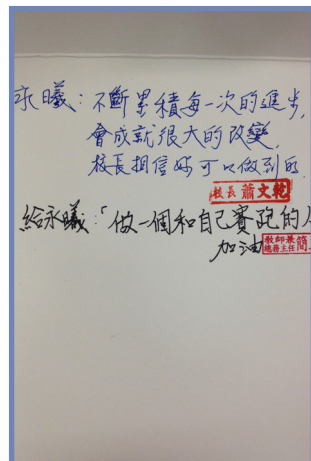 永曦:不斷累積每一次的進步,
會成就很大的改變,
校長相信妳可以做到的.
校長 蕭文範
給永曦:「做一個和自己賽跑的人
加油
教師兼
總務主任 簡